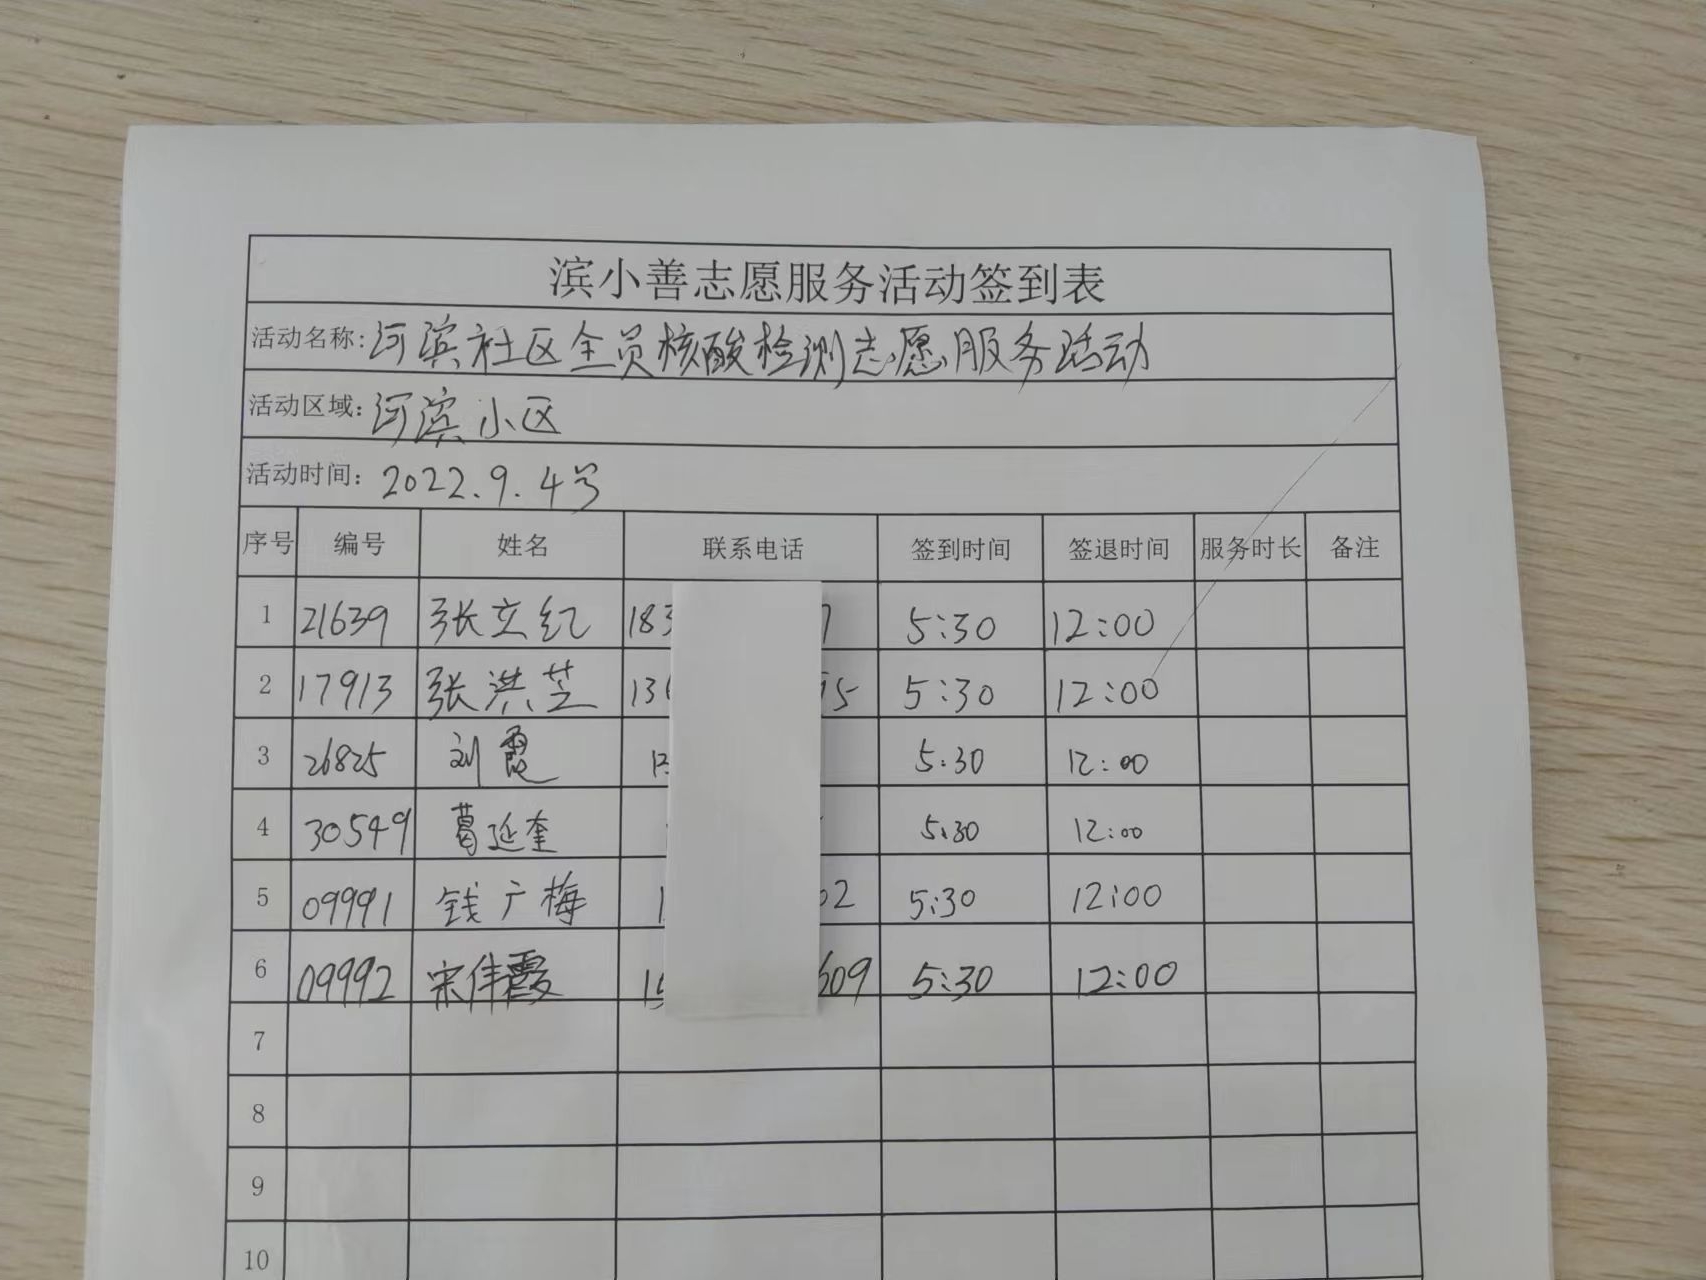 滨小善志愿服务活动签到表
活动名称:河滨社区全员核酸检测志愿服务活动
活动区域:河滨小区
活动时间:2022.9.4号
序号 编号 姓名 联系电话 签到时间 签退时间 服务时长 备注
1 21639 张立红 183 7 5:30 12:00
2 17913 张洪芝 136 95 5:30 12:00
3 26825 刘霞 13 5:30 12:00
4 30549 葛延奎 5:30 12:00
5 09991 钱广梅 1 02 5:30 12:00
6 09992 宋伟霞 15 609 5:30 12:00
7
8
9
10